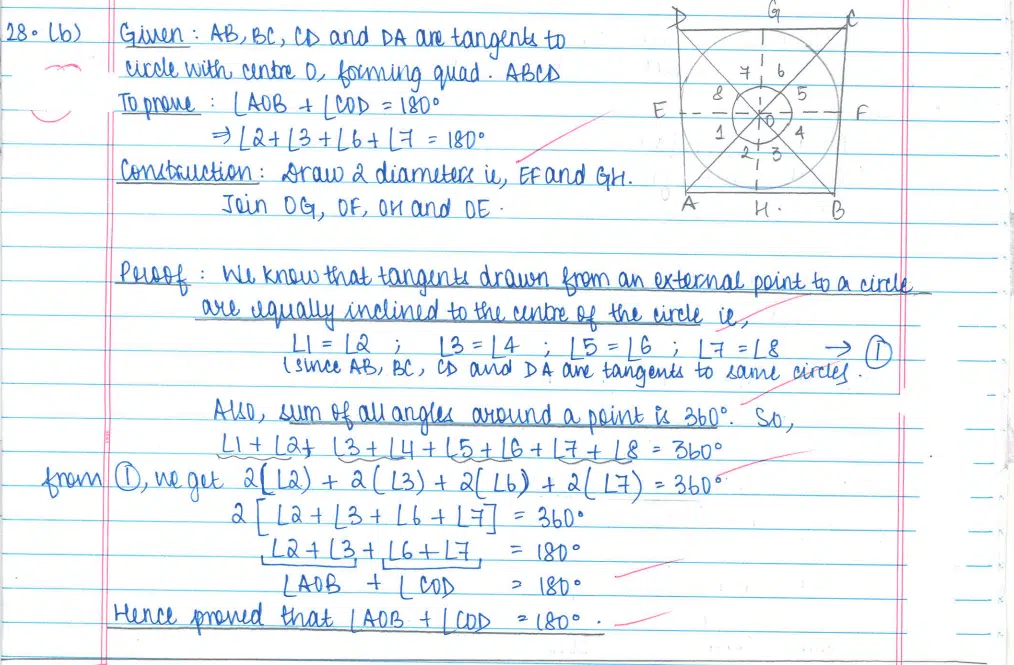 28. (b) Given : AB, BC, CD and DA are tangents to
circle with centre O, forming quad. ABCD
To prove : ∠AOB + ∠COD = 180°
⇒ ∠2 + ∠3 + ∠6 + ∠7 = 180°
Construction : Draw 2 diameters ie, EF and GH.
Join OG, OF, OH and OE.
D G C
7 6
8 5
E O F
1 4
2 3
A H. B
Proof : We know that tangents drawn from an external point to a circle
are equally inclined to the centre of the circle ie,
∠1 = ∠2 ; ∠3 = ∠4 ; ∠5 = ∠6 ; ∠7 = ∠8 → ①
(since AB, BC, CD and DA are tangents to same circles).
Also, sum of all angles around a point is 360°. So,
∠1 + ∠2 + ∠3 + ∠4 + ∠5 + ∠6 + ∠7 + ∠8 = 360°
from ①, we get 2(∠2) + 2(∠3) + 2(∠6) + 2(∠7) = 360°
2[∠2 + ∠3 + ∠6 + ∠7] = 360°
∠2 + ∠3 + ∠6 + ∠7 = 180°
∠AOB + ∠COD = 180°
Hence proved that ∠AOB + ∠COD = 180°.